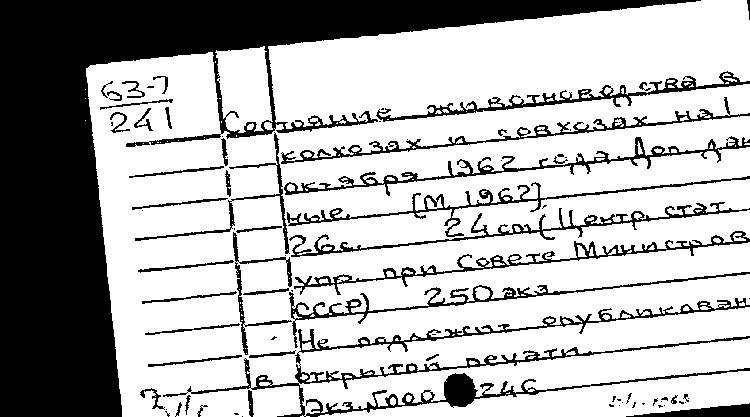 63-7
241
Состояние животноводства в
колхозах и совхозах на 1
октября 1962 года. Доп. дан
ные. [М, 1962]
26с. 24 cm (Центр. стат.
упр. при Совете Министров
СССР) 250 экз.
Не подлежит опубликован
в открытой печати.
Экз. №000 246